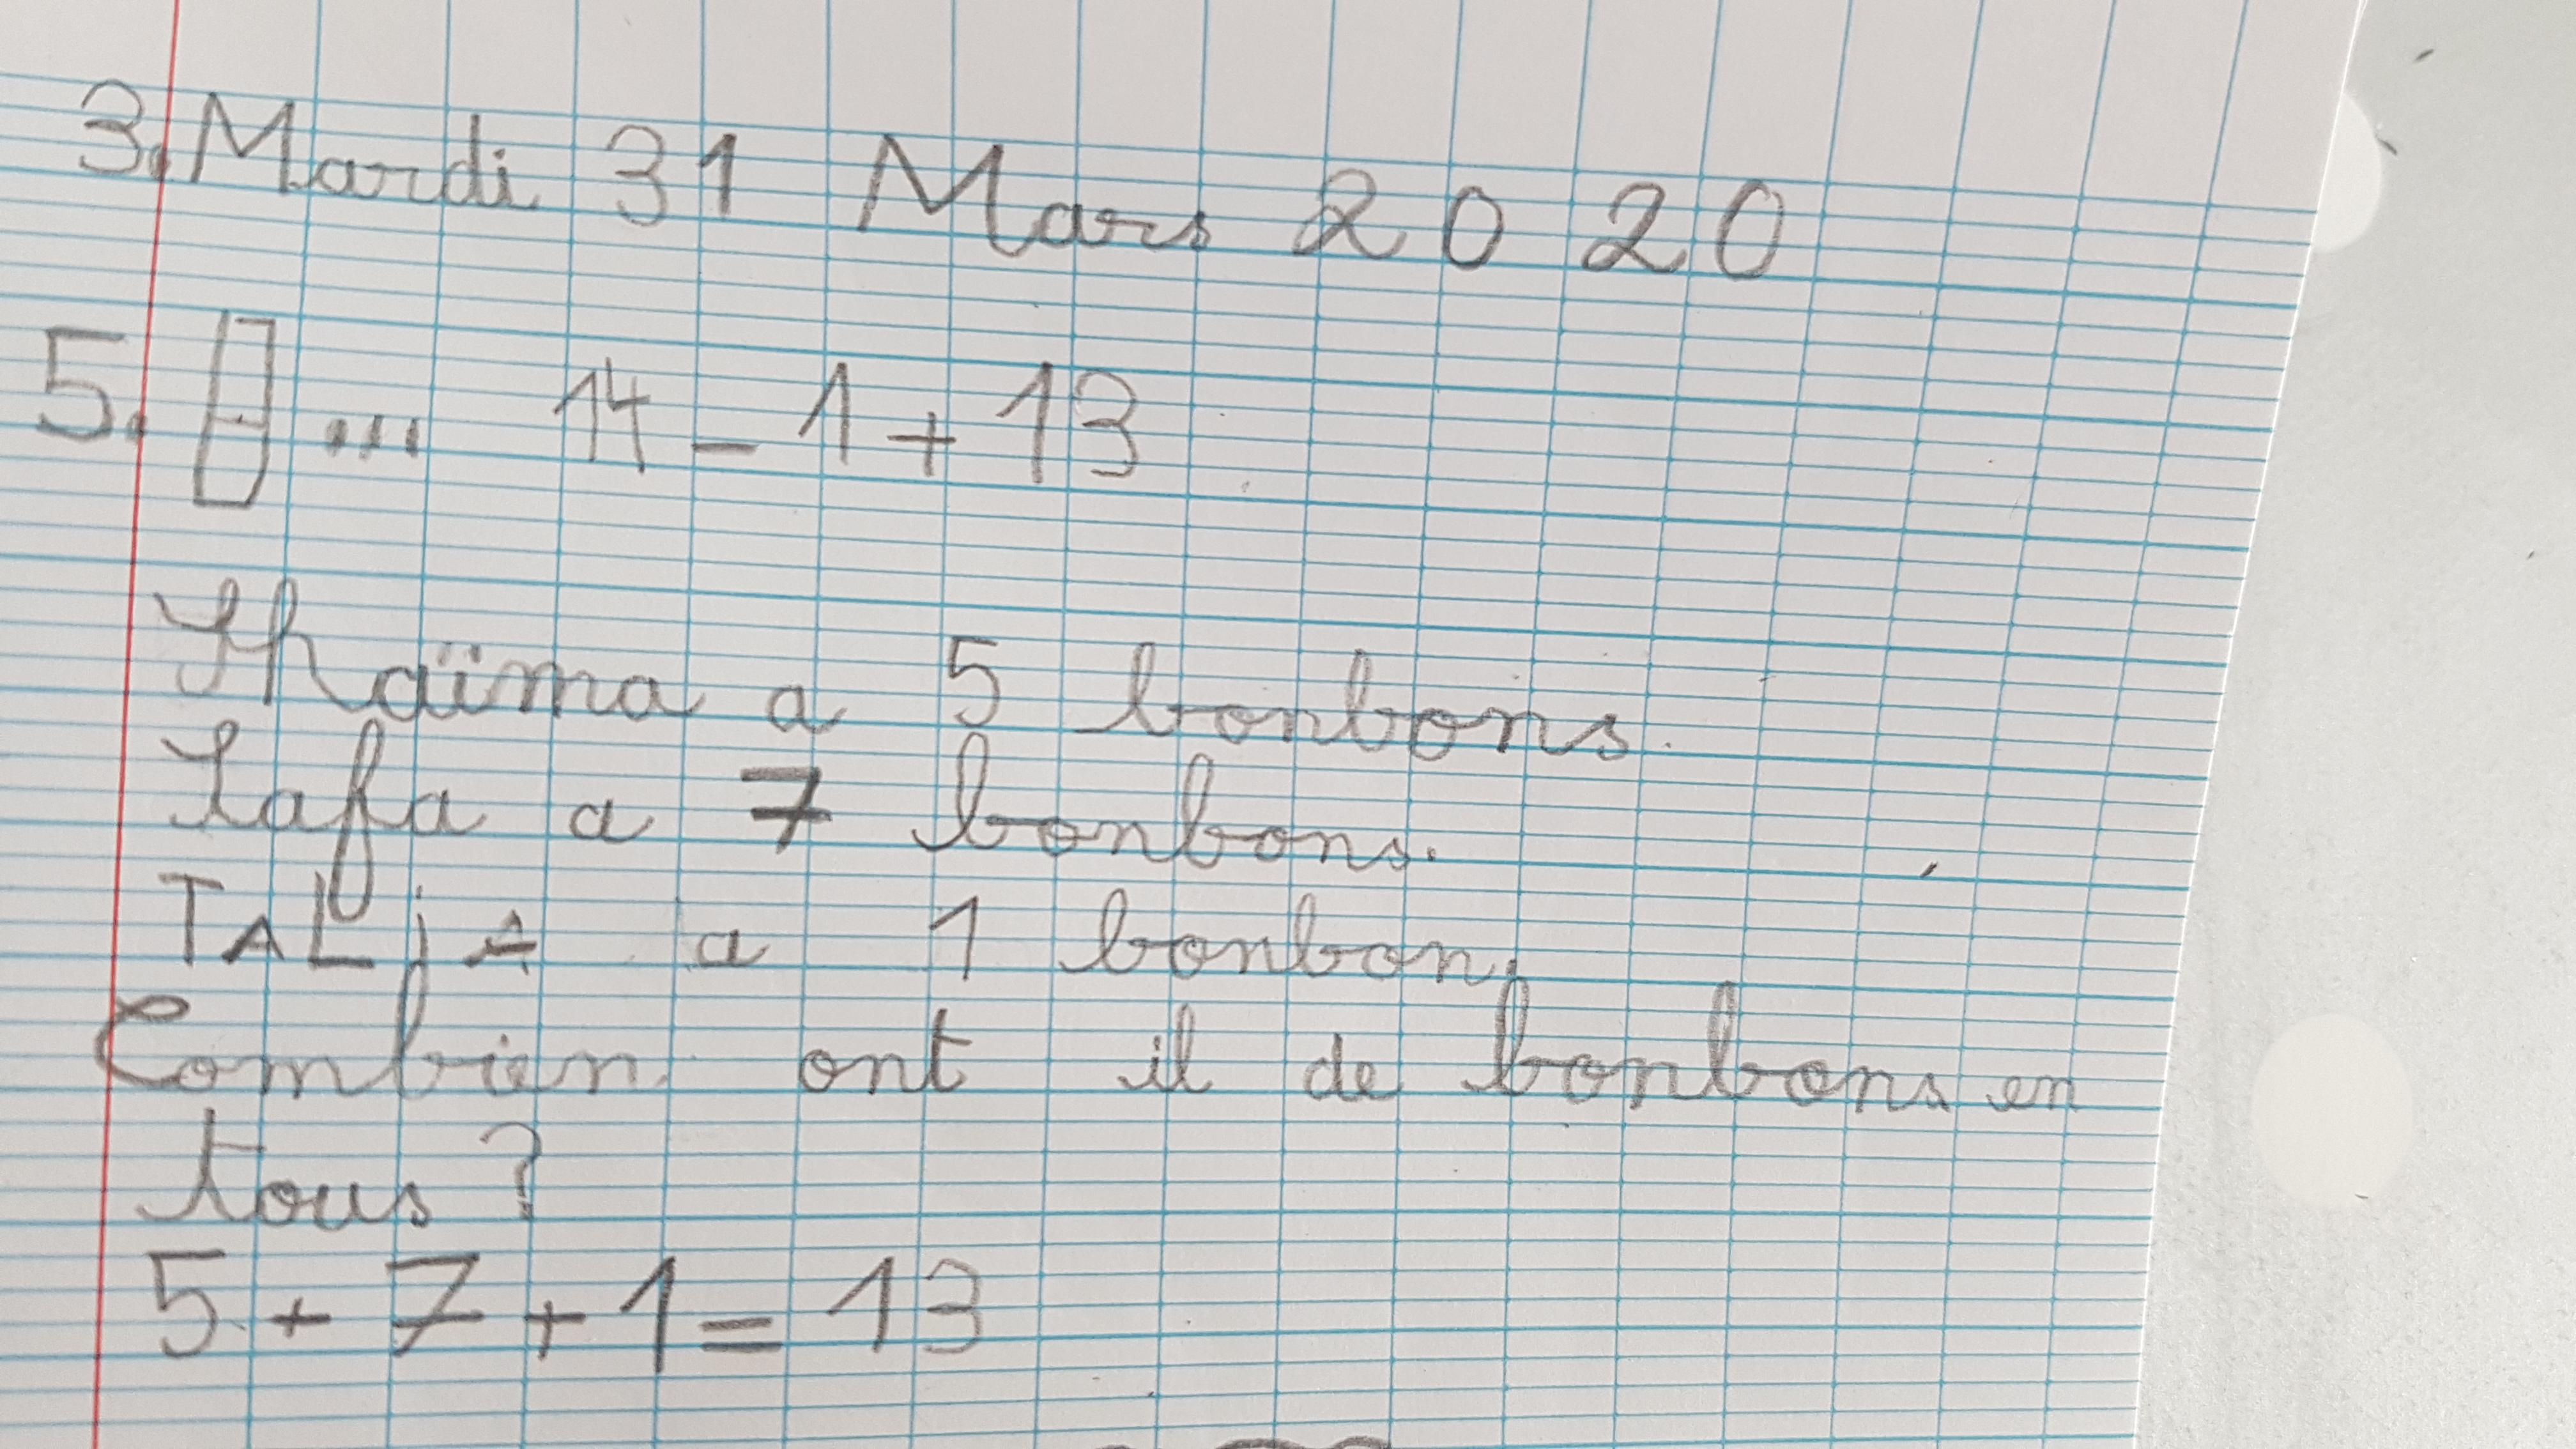 3. Mardi 31 Mars 2020
5. ... 14 - 1 + 13
Shaïma a 5 bonbons.
Safa a 7 bonbons.
TALjA a 1 bonbon.
Combien ont il de bonbons en
tous ?
5 + 7 + 1 = 13